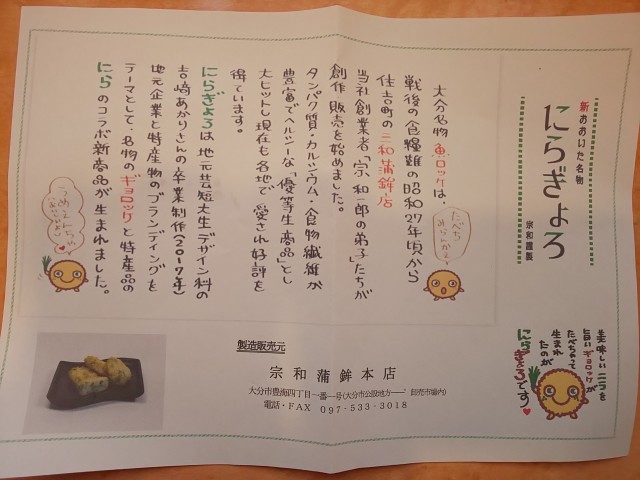 新おおいた名物
にらぎょろ
宗和謹製
美味しいニラを
旨いギョロッケが
たべちゃって
生まれ
たのが
にら
ぎょろです♥
大分名物 魚ロッケは、
戦後の食糧難の昭和27年頃から
住吉町の三和蒲鉾店
当社創業者「宗 和一郎の弟子」たちが
創作 販売を始めました。
タンパク質・カルシウム・食物繊維が
豊富でヘルシーな「優等生商品」とし
大ヒットし現在も各地で 愛され好評を
得ています。
にらぎょろは地元芸短大生デザイン科の
吉﨑あかりさんの卒業制作(2017年)
地元企業と特産物のブランディングを
テーマとして、名物のギョロッケと特産品の
にらのコラボ新商品が生まれました。
たべちみらんかえ
うめえんなあ
製造販売元
宗和蒲鉾本店
大分市豊海四丁目一番一号(大分市公設地方 卸売市場内)
電話・FAX 097-533-3018